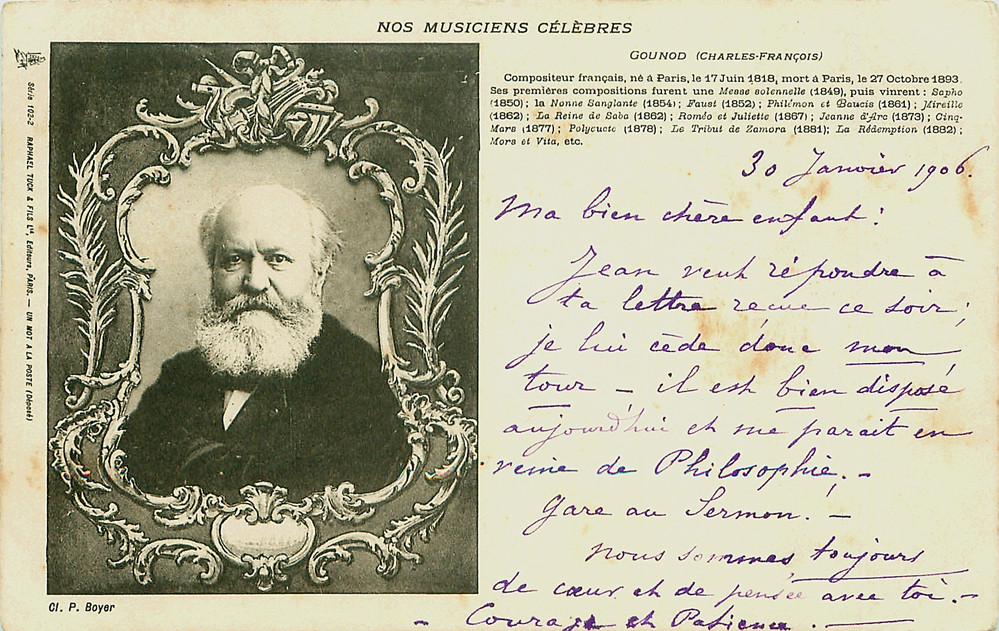 NOS MUSICIENS CÉLÈBRES
GOUNOD (CHARLES-FRANÇOIS)
Compositeur français, né à Paris, le 17 Juin 1818, mort à Paris, le 27 Octobre 1893.
Ses premières compositions furent une Messe solennelle (1849), puis vinrent : Sapho
(1850) ; la Nonne Sanglante (1854) ; Faust (1852) ; Philémon et Baucis (1861) ; Mireille
(1862) ; La Reine de Saba (1862) ; Roméo et Juliette (1867) ; Jeanne d'Arc (1873) ; Cinq-
Mars (1877) ; Polyeucte (1878) ; Le Tribut de Zamora (1881) ; La Rédemption (1882) ;
Mors et Vita, etc.
30 Janvier 1906.
Ma bien chère enfant :
Jean veut répondre à
ta lettre recue ce soir ;
je lui cède donc mon
tour — il est bien disposé
aujourd'hui et me parait en
veine de Philosophie. —
Gare au Sermon ! —
Nous sommes toujours
de cœur et de pensée avec toi. —
- Courage et Patience . —
Série 102-2 RAPHAEL TUCK & FILS Ltd, Editeurs, PARIS. — UN MOT A LA POSTE (Déposé)
Cl. P. Boyer